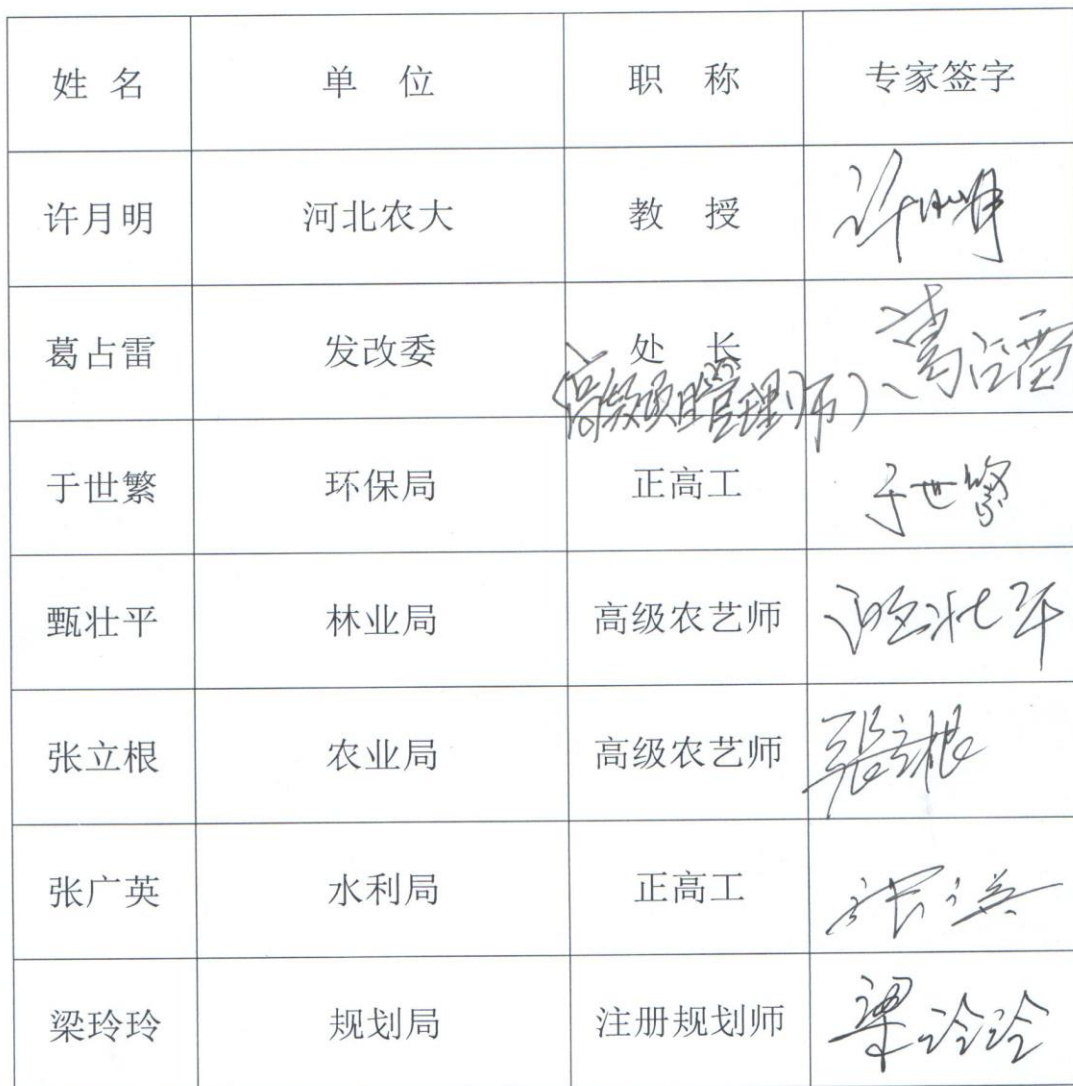 姓 名 单 位 职 称 专家签字
许月明 河北农大 教 授 许月明
葛占雷 发改委 处 长 葛占雷
(高级项目管理师)
于世繁 环保局 正高工 于世繁
甄壮平 林业局 高级农艺师 甄壮平
张立根 农业局 高级农艺师 张立根
张广英 水利局 正高工 张广英
梁玲玲 规划局 注册规划师 梁玲玲